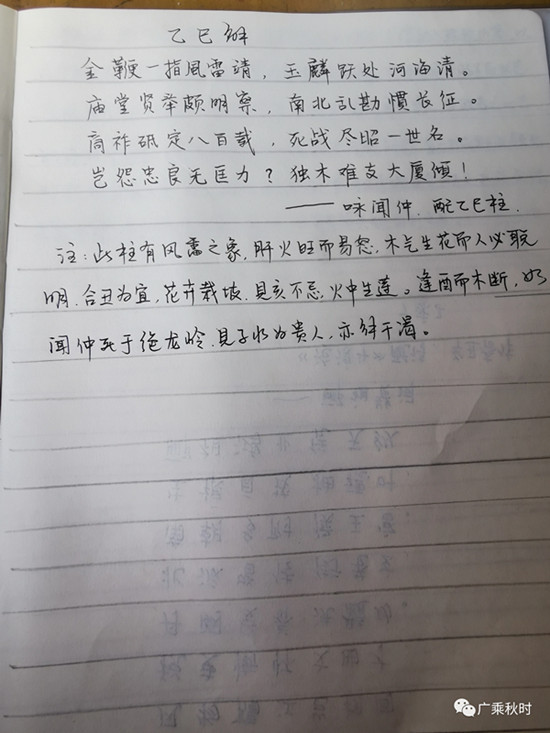 乙巳辩
金鞭一指風雷靖，玉麟跃处河海清。
庙堂贤举颇明察，南北乱勘慣长征。
商祚砥定八百载，死战尽昭一世名。
岂怨忠良无匡力？独木难支大厦傾！
——咏闻仲.配乙巳柱.
注：此柱有风雷之象，肝火旺而易怒，木气生花而人必聪
明，合丑为宜，花卉栽坡，見亥不忌，火中生莲。逢酉而木断，如
闻仲死于绝龙岭，見子水为贵人，亦鲜干渴。
广乘秋时